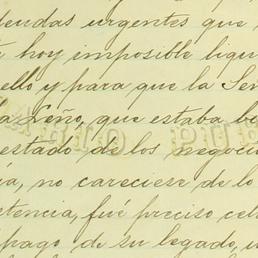 deudas urgentes que
hoy imposible liqui
ello y para que la Señ
la Leño, que estaba b
estado de los negocio
ia, no careciese de lo
stencia, fué preciso cel
pago de su legado, u